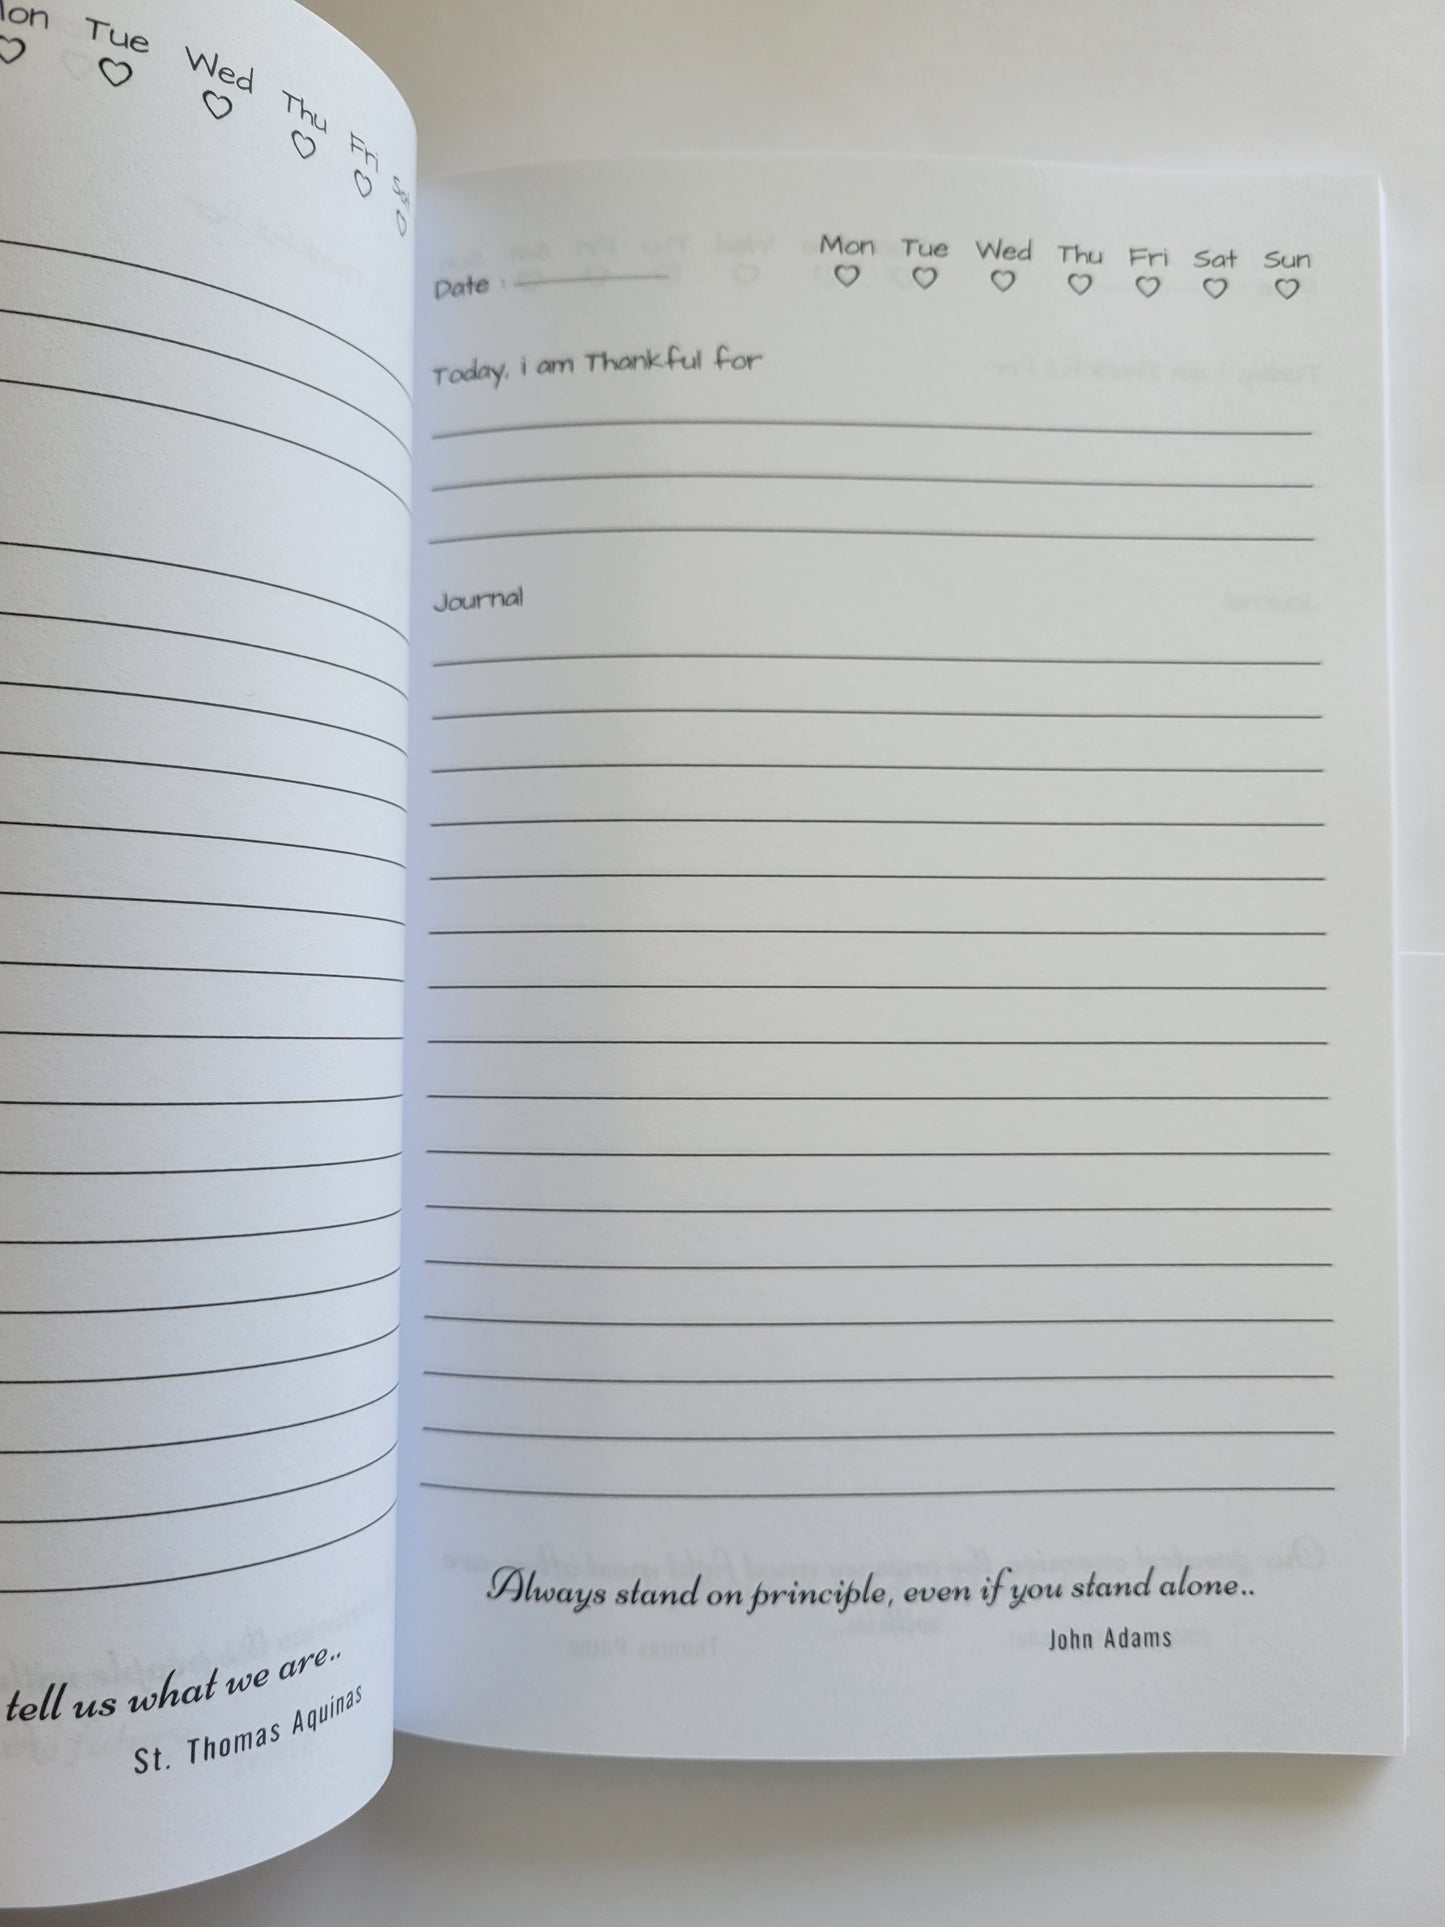 Mon Tue Wed Thu Fri Sat
tell us what we are..
St. Thomas Aquinas
Mon Tue Wed Thu Fri Sat Sun
Date :
Today, i am Thankful for
Journal
Always stand on principle, even if you stand alone..
John Adams